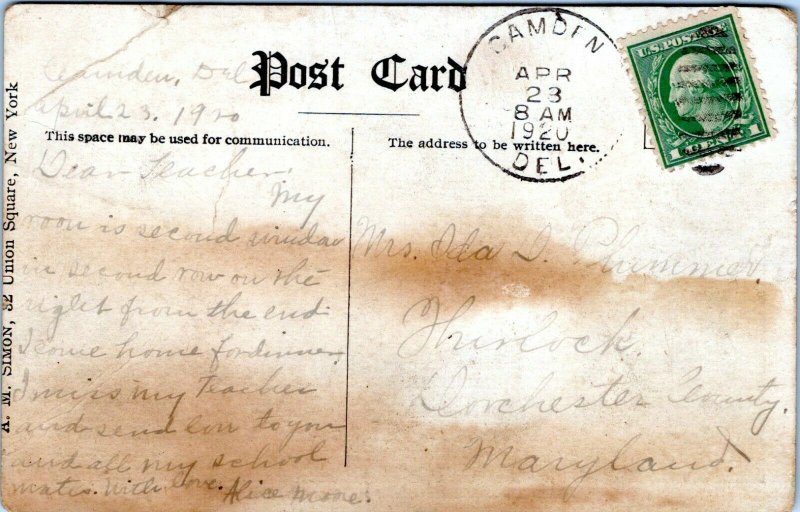 Post Card
CAMDEN
APR
23
8 AM
1920
DEL.
U.S. POSTAGE
1 CENT 1
This space may be used for communication.
The address to be written here.
A. M. SIMON, 32 Union Square, New York
Camden, Del
April 23, 1920
Dear Teacher:
My
room is second window
in second row on the
right from the end.
I come home for dinner.
I miss my Teacher
and send lov to you
and all my school
mates. With love. Alice Moore.
Mrs. Ida D. Plummer.
Hurlock.
Dorchester County.
Maryland.